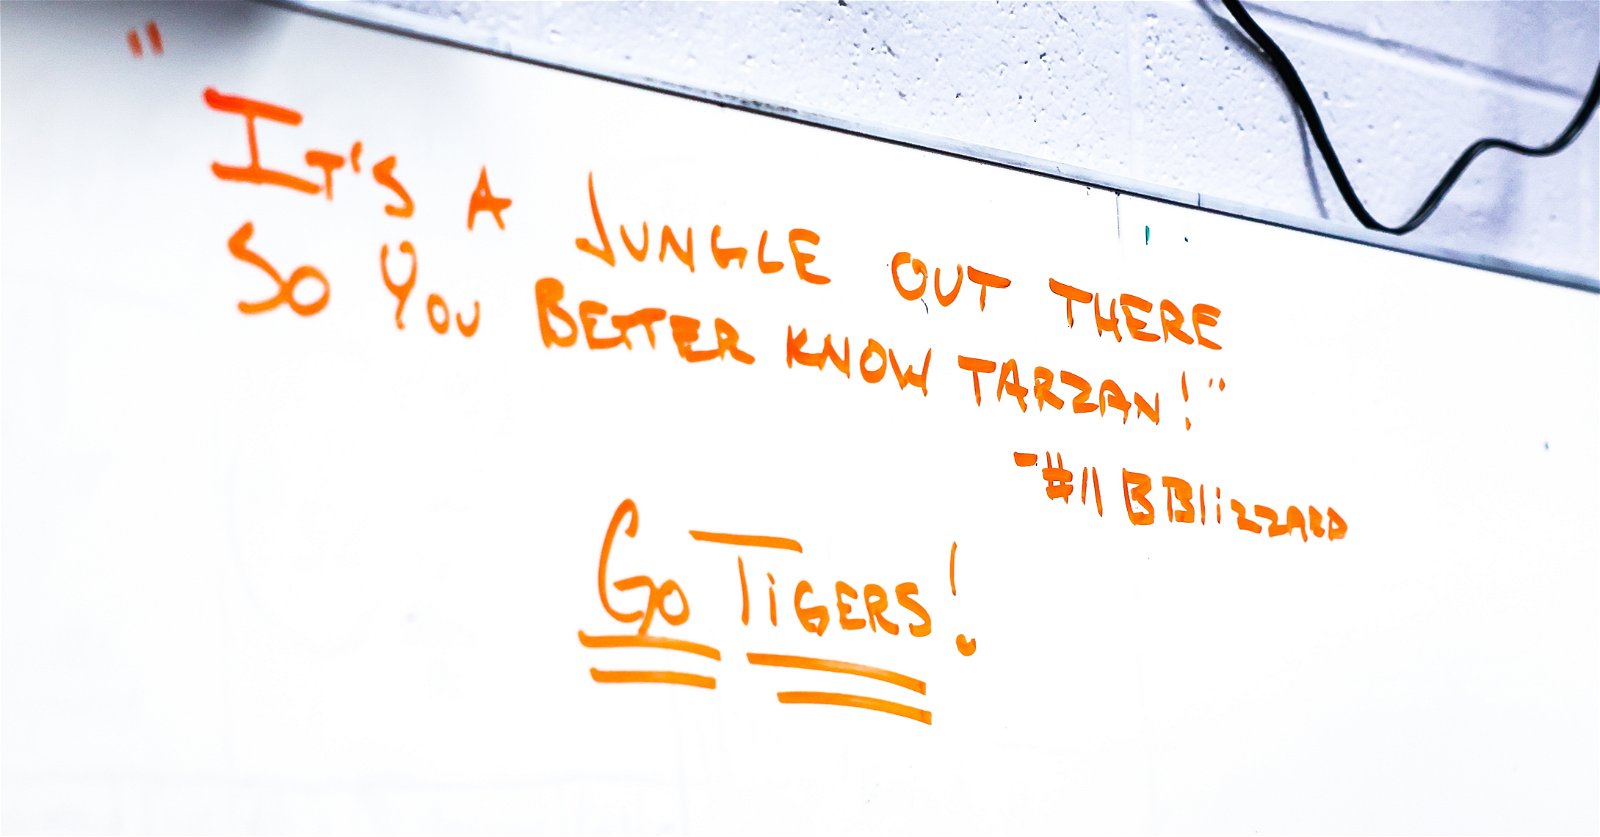 "It's A Jungle Out There
So You Better Know Tarzan!"
-#11 B Blizzard
Go Tigers!